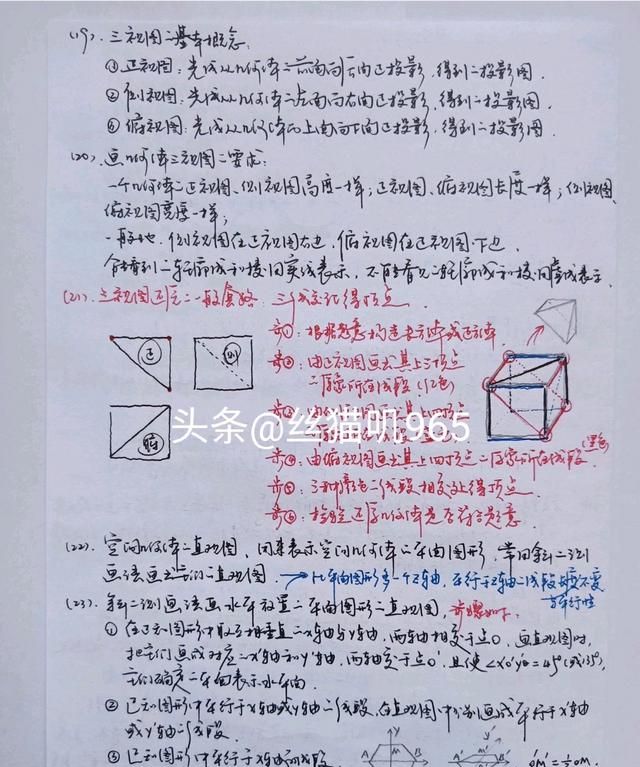 (19). 三视图之基本概念:
① 正视图: 光线从几何体之前面向后面正投影, 得到之投影图.
② 侧视图: 光线从几何体之左面向右面正投影, 得到之投影图.
③ 俯视图: 光线从几何体之上面向下面正投影, 得到之投影图.
(20). 画几何体三视图之要求:
一个几何体之正视图、侧视图高度一样; 正视图、俯视图长度一样; 侧视图、
俯视图宽度一样;
一般地, 侧视图在正视图右边, 俯视图在正视图下边.
能看到之轮廓线和棱用实线表示, 不能看见之轮廓线和棱用虚线表示.
(21). 三视图还原之一般套路: 三线交汇得顶点.
正
侧
俯
步①: 根据题意构造长方体或正方体
步②: 由正视图画出其上三顶点
之原象所在线段 (红色)
头条@丝猫叽965
步④: 由俯视图画出其上四顶点之原象所在线段 (黑色)
步⑤: 三种颜色之线段相交处得顶点.
步⑥: 检验还原几何体是否符合题意.
(22). 空间几何体之直观图, 用来表示空间几何体之平面图形, 常用斜二测
画法画出它们之直观图.
→比平面图形多一个z轴, 平行于z轴之线段长度不变
与平行性
(23). 斜二测画法画水平放置之平面图形之直观图, 步骤如下:
① 在已知图形中取互相垂直之x轴与y轴, 两轴相交于点O, 画直观图时,
把它们画成对应之x′轴和y′轴, 两轴交于点O′, 且使∠x′o′y′=45°(或135°),
它们确定之平面表示水平面.
② 已知图形中平行于x轴或y轴之线段, 在直观图中分别画成平行于x′轴
或y′轴之线段.
③ 已知图形中平行于x轴之线段
y
A
M
B
A′
M′
B′